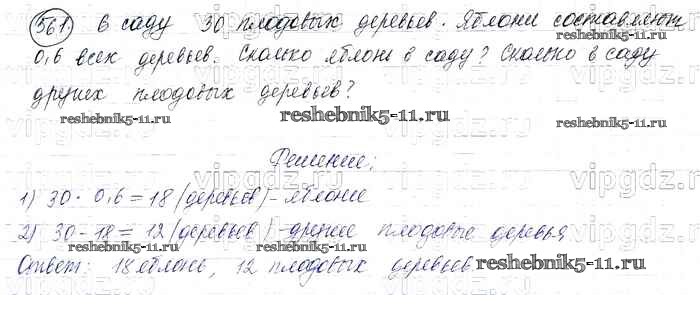 561. В саду 30 плодовых деревьев. Яблони составляют
0,6 всех деревьев. Сколько яблонь в саду? Сколько в саду
других плодовых деревьев?
reshebnik5-11.ru
reshebnik5-11.ru
Решение:
1) 30 · 0,6 = 18 (деревьев) - яблоне
2) 30 - 18 = 12 (деревьев) - другие плодовые деревья
reshebnik5-11.ru
reshebnik5-11.ru
Ответ: 18 яблонь, 12 плодовых деревьев.
reshebnik5-11.ru
vipgdz.ru
vipgdz.ru
vipgdz.ru